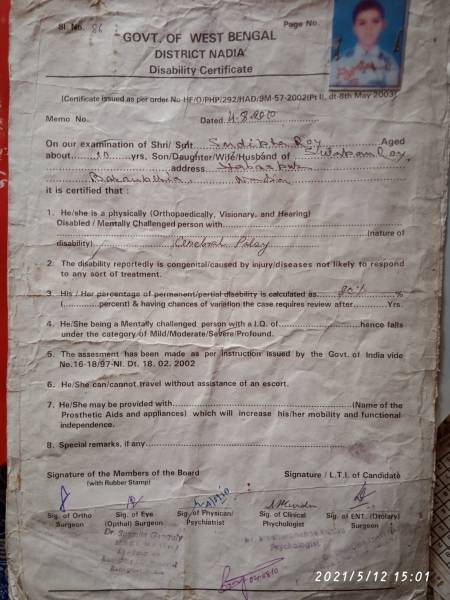 Sl. No. 86
Page No.
GOVT. OF WEST BENGAL
DISTRICT NADIA
Disability Certificate
(Certificate issued as per order No-HF/O/PHP/292/HAD/9M-57-2002(Pt I), dt-8th May 2003)
Memo No. Dated 4.8.2010
On our examination of Shri/ Smt Sudipta Roy Aged
about 10 yrs. Son/Daughter/Wife/Husband of Swapan Roy
address
Nadia
it is certified that :
1. He/she is a physically (Orthopaedically, Visionary, and Hearing)
Disabled / Mentally Challenged person with (nature of
disability) Cerebral Palsy
2. The disability reportedly is congenital/caused by injury/diseases not likely to respond
to any sort of treatment.
3. His / Her percentage of permenent/partial disability is calculated as 80% %
( percent) & having chances of variation the case requires review after Yrs.
4. He/She being a Mentally challenged person with a I.Q. of hence falls
under the category of Mild/Moderate/Severe/Profound.
5. The assesment has been made as per instruction issued by the Govt. of India vide
No.16-18/97-NI. Dt. 18. 02. 2002
6. He/She can/cannot travel without assistance of an escort.
7. He/She may be provided with (Name of the
Prosthetic Aids and appliances) which will increase his/her mobility and functional
independence.
8. Special remarks, if any
Signature of the Members of the Board
(with Rubber Stamp)
Signature / L.T.I. of Candidate
Sig. of Ortho
Surgeon
Sig. of Eye
(Opthal) Surgeon
Sig. of Physican/
Psychiatrist
Sig. of Clinical
Phychologist
Sig. of ENT. (Otolary)
Surgeon
Dr. Susmita Ganguly
Psychologist
2021/5/12 15:01